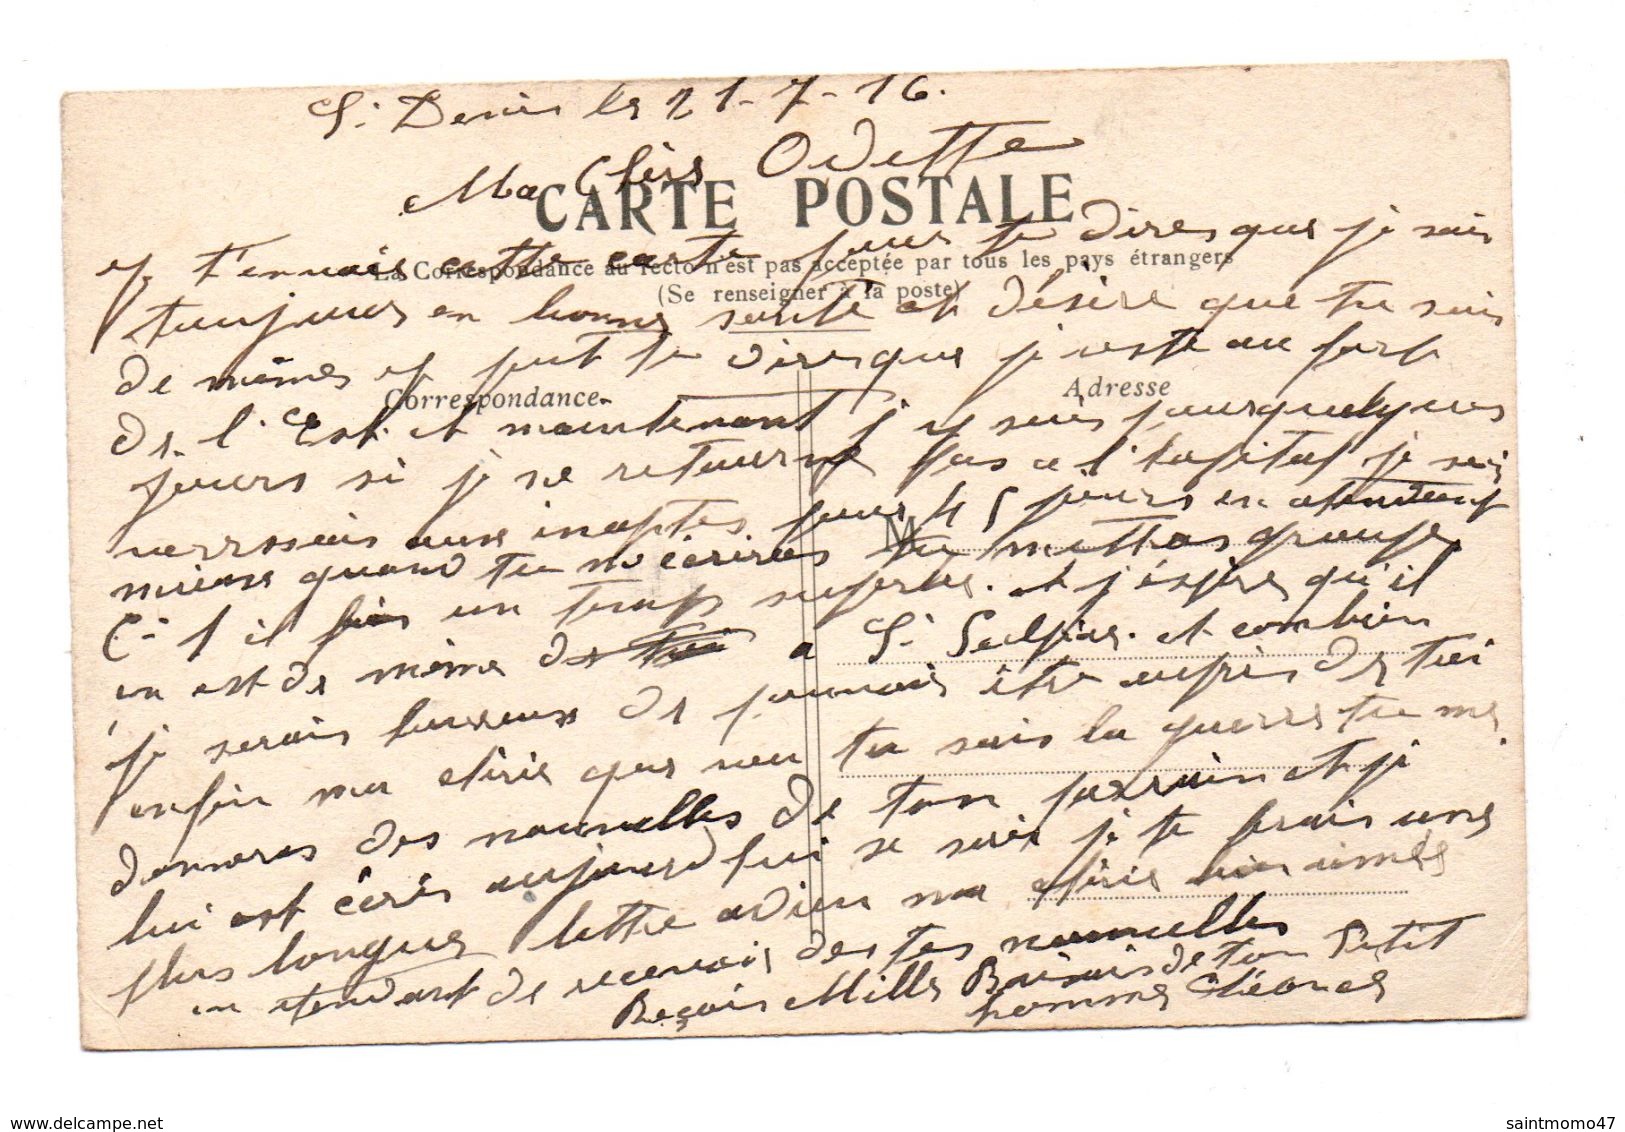 St Denis le 21-7-16.
Ma Chère Odette
CARTE POSTALE
La Correspondance au recto n'est pas acceptée par tous les pays étrangers
(Se renseigner à la poste)
Correspondance
Adresse
M
je t'envois cette carte pour te dires que je suis
toujours en bonne santé et désire que tu sois
de mêmes je put te dires que je reste au fort
de l'Est et maintenant j'y suis pour quelques
jours si je ne retourne pas a l'hopital je
aux inaptes pour 45 jours en attendant
mieux quand tu m'écriras tu mettras groupe
C-1 il fais un temps superbe. et j'éspère qu'il
en est de même de a St Sulpice. et combien
je serais heureux de pouvoir être auprès de toi
enfin ma chérie que veu tu sais la guerre tu me
donneras des nouvelles de ton parrain et je
lui est écris aujourd'hui se soir je te ferais une
plus longue lettre adieu ma chérie bien aimée
en attendant de recevoir des tes nouvelles
Reçois Mille Baisais de ton Petit
homme Cléonce
saintmomo47